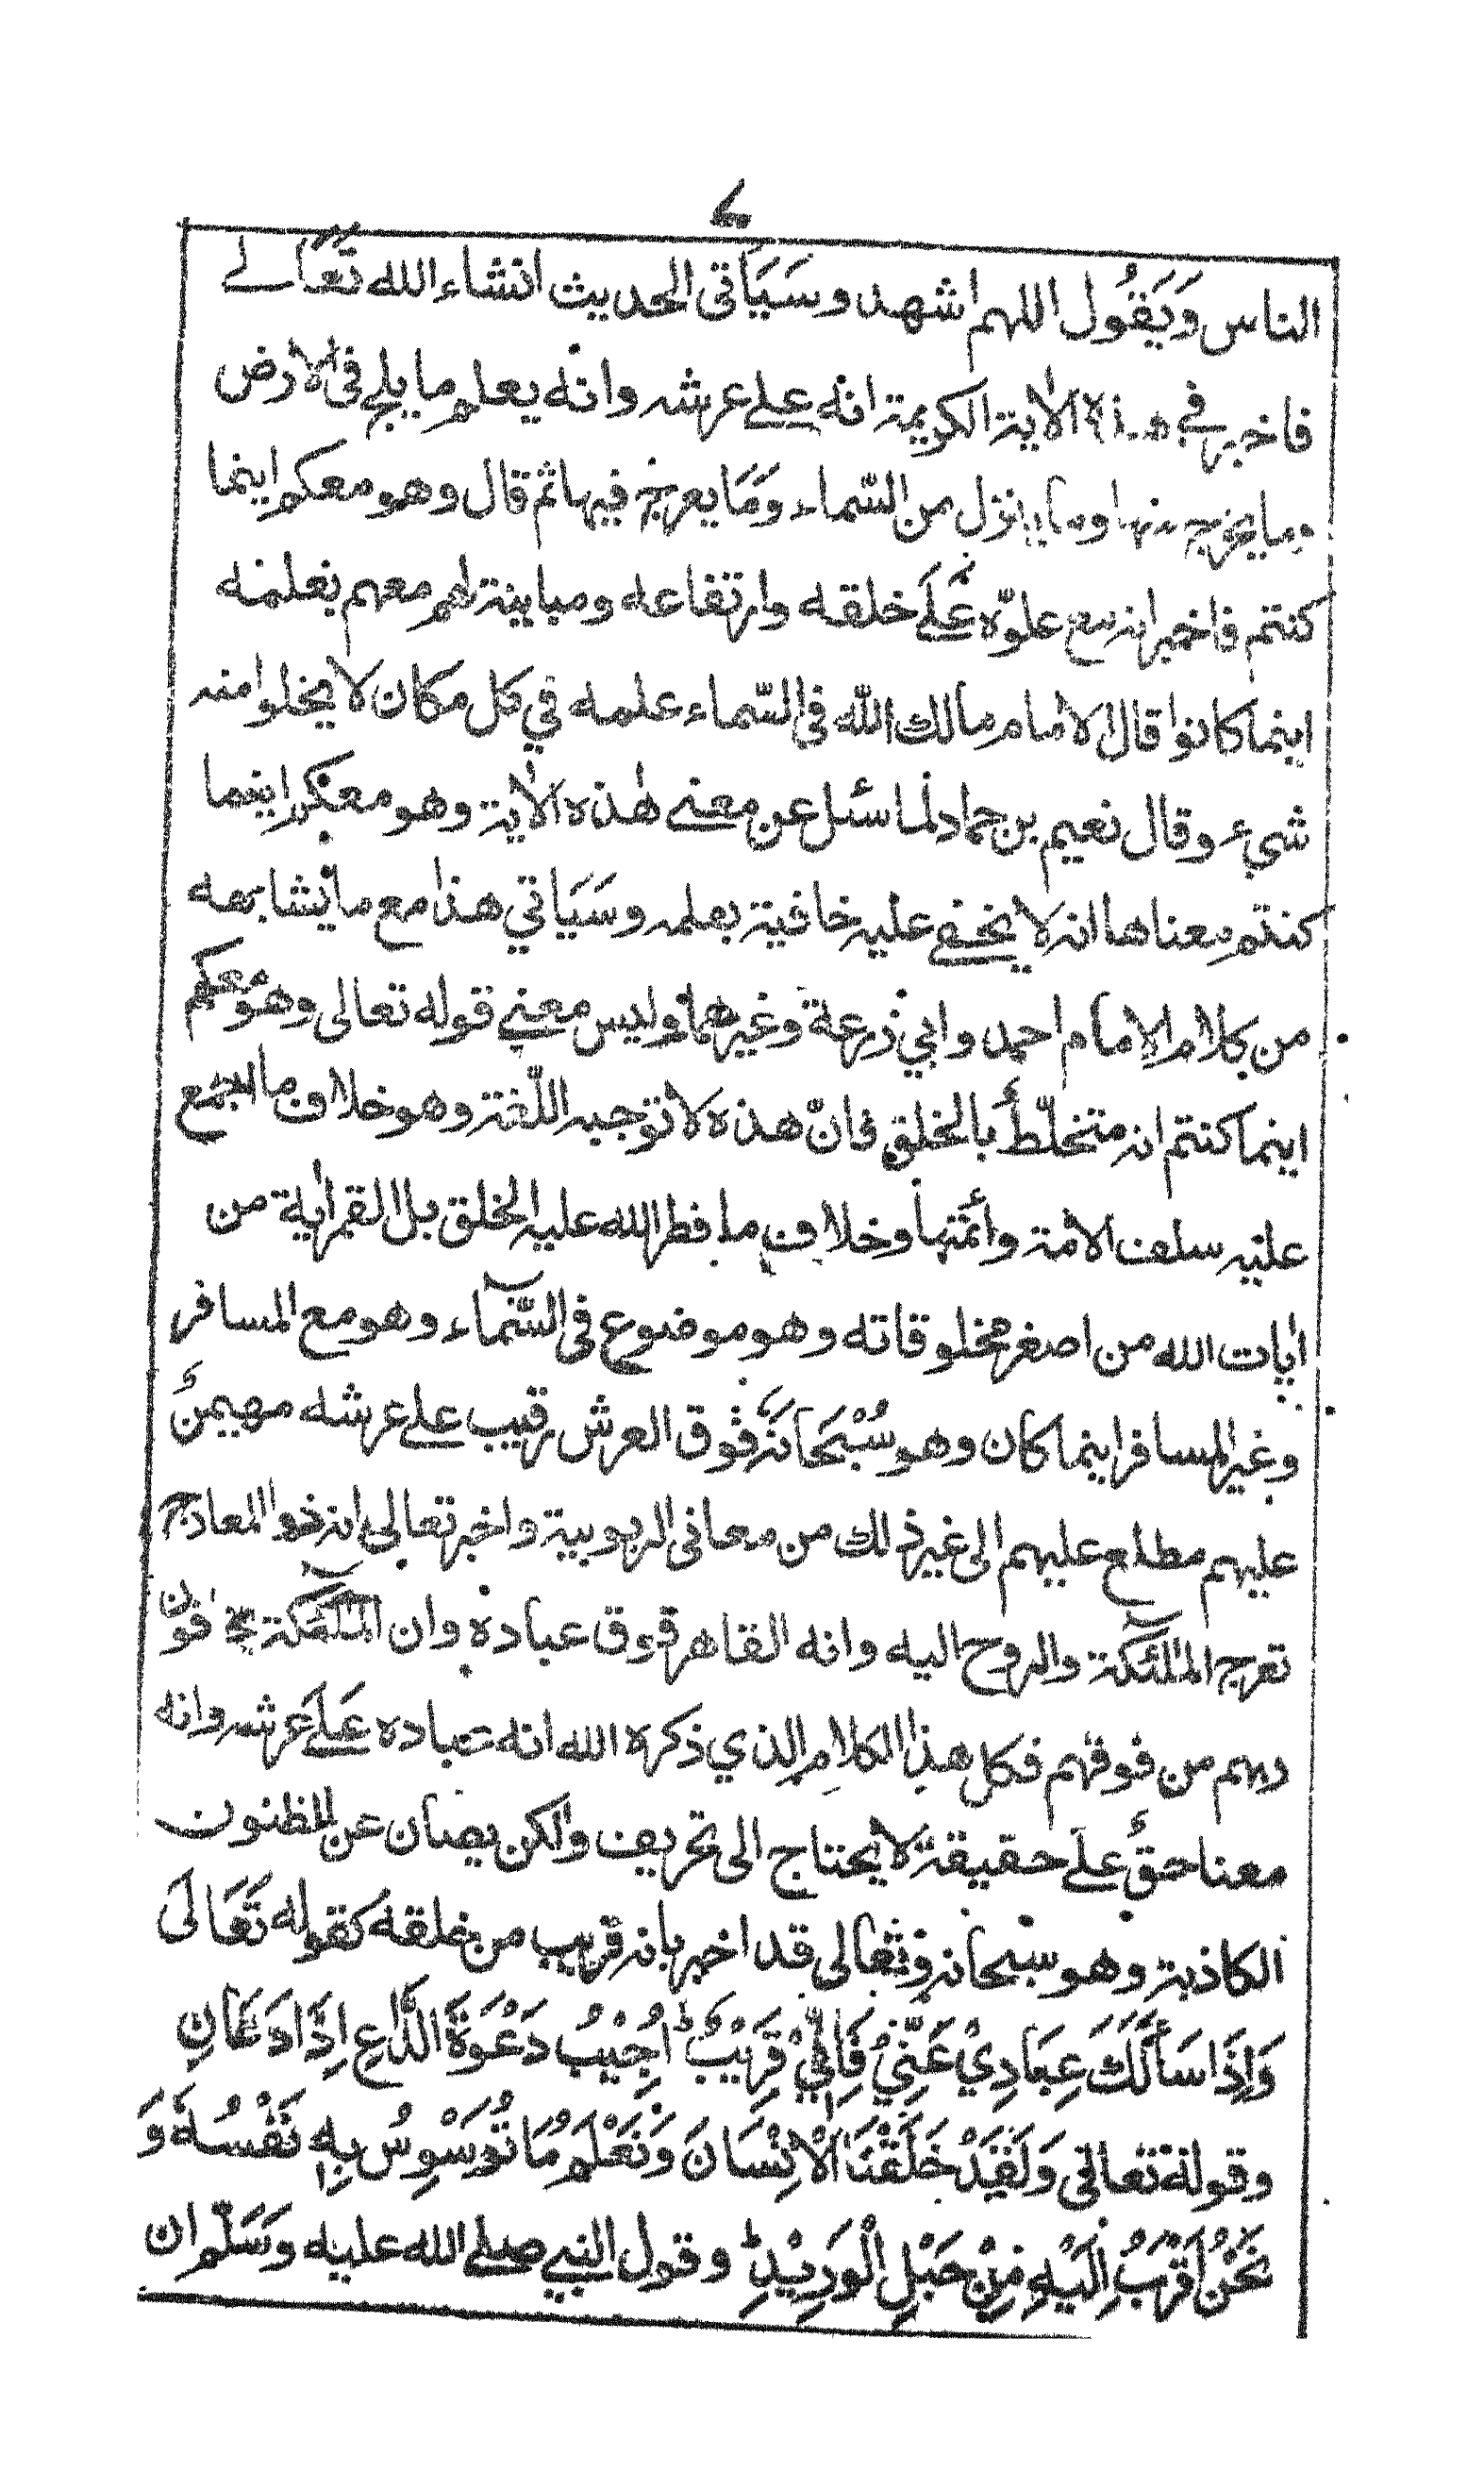 ے
الناس وَيَقُول اللهم اشهد وسَيَأتى الحديث انشاء الله تَعَالے
فاخبر في هذه الاٰية الكريمة انه علے عرشه وانه يعلم ما يلج فى الارض
وما يخرج منها وما ينزل من السّماء وَمَا يعرج فيها ثم قال وهو معكم اينما
كنتم فاخبر انه مع علوّه عَلَے خلقه وارتفاعه ومباينة لهم معهم بعلمه
اينما كانوا قال الامام مالك اللّه فى السّماء علمه في كل مكان لا يخلوا منه
شيء وقال نعيم بن حماد لما سئل عن معنے هٰذه الاٰية وهو معكم اينما
كنتم معناها انه لا يخفے عليه خافية بعلمه وسَيَاتي هذا مع ما يشابهه
من كلام الامام احمد وابي زرعة وغيرهما وليس معنے قوله تعالى وهو معكم
اينما كنتم انه متخلّطٌ بالخلق فانّ هذه لا توجبه اللّغة وهو خلاف ما اجمع
عليه سلف الامة وائمتها وخلاف ما فطر الله عليه الخلق بل القمر اٰية من
اٰيات الله من اصغر مخلوقاته وهو موضوع فى السّمآء وهو مع المسافر
وغير المسافر اينما كان وهو سُبْحَانَهٗ فوق العرش رقيب علے عرشه مهيمنٌ
عليهم مطلع عليهم الى غير ذلك من معانى الربوبية واخبر تعالى انه ذو المعارج
تعرج الملٰئكة والروح اليه وانه القاهر فوق عباده وان الملٰئكة يخافون
ربهم من فوقهم فكل هذا الكلام الذي ذكره الله انه عباده عَلَے عرشه وانه
معنا حقٌ علے حقيقة لا يحتاج الى تحريف ولكن يصان عن الظنون
الكاذبة وهو سبحانه وتعالى قد اخبر بانه قريب من خلقه كقوله تَعَالَى
وَاِذَا سَأَلَكَ عِبَادِيْ عَنِّيْ فَاِنِّيْ قَرِيْبٌ ؕ اُجِيْبُ دَعْوَةَ الدَّاعِ اِذَا دَعَانِ
وقوله تعالى وَلَقَدْ خَلَقْنَا الْاِنْسَانَ وَنَعْلَمُ مَا تُوَسْوِسُ بِهٖ نَفْسُهٗ وَ
نَحْنُ اَقْرَبُ اِلَيْهِ مِنْ حَبْلِ الْوَرِيْدِ ؕ وقول النبي صلے الله عليه وَسَلّم ان